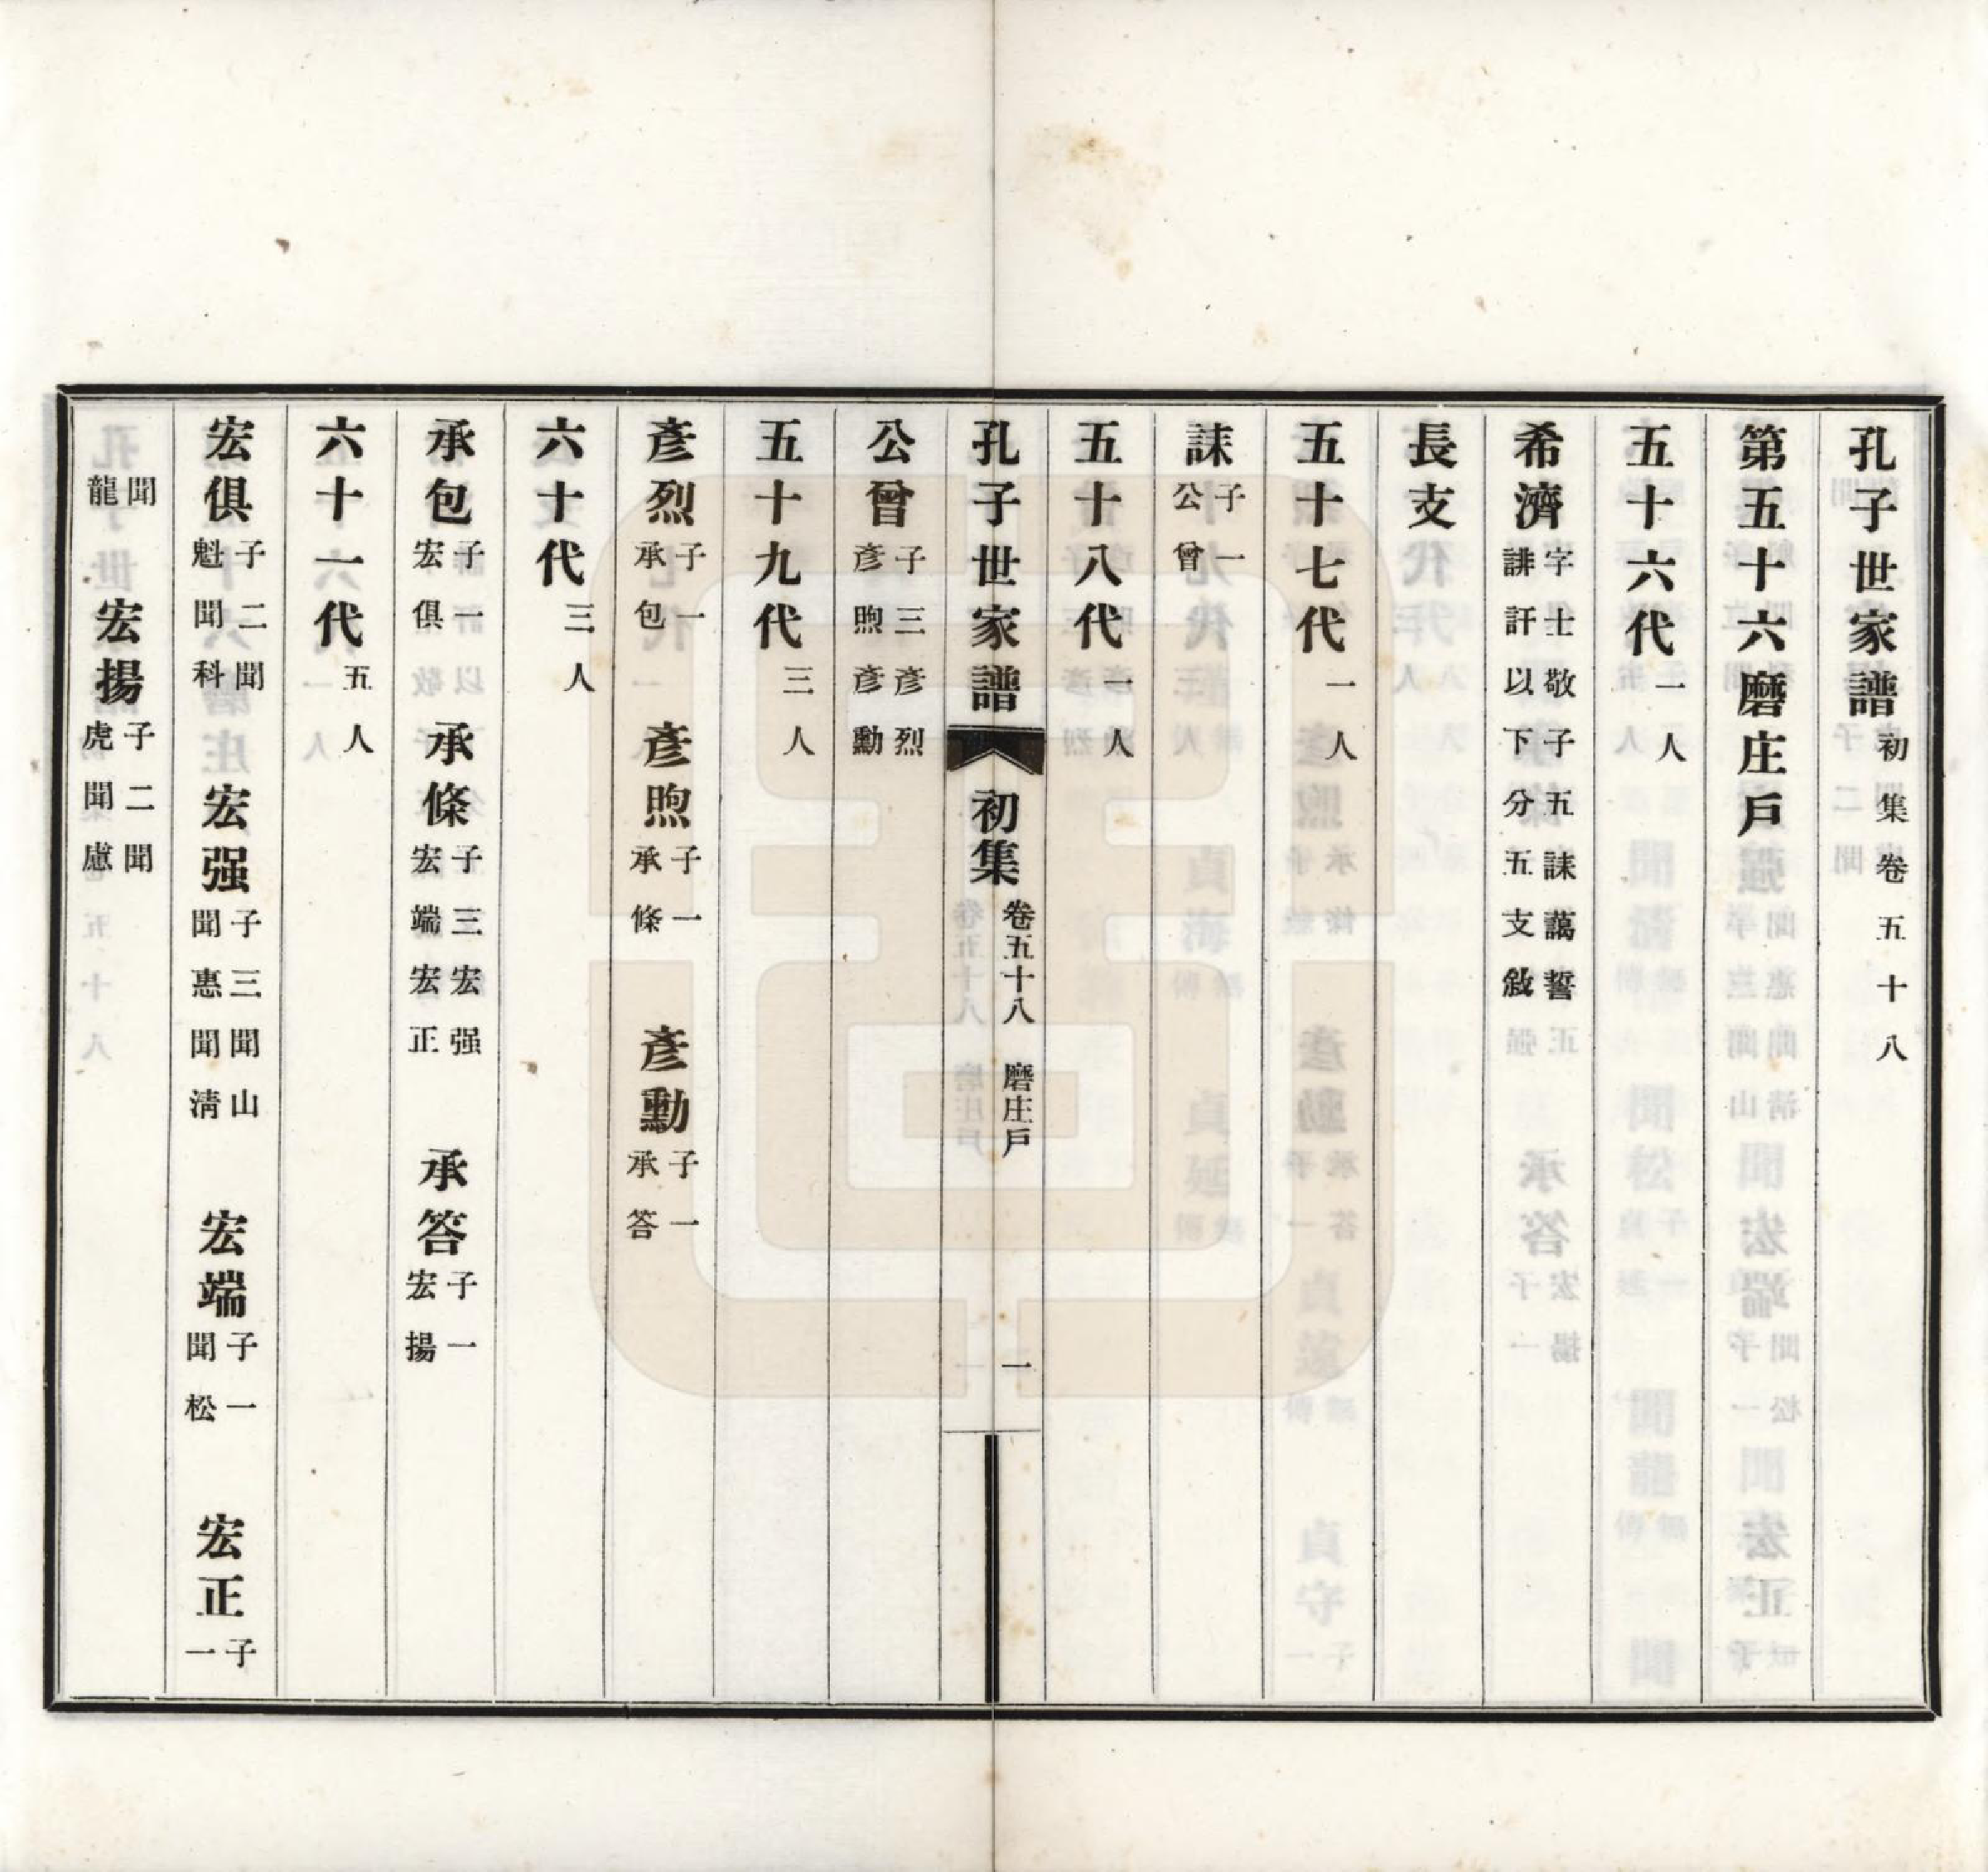 孔子世家譜初集卷五十八
第五十六磨庄戶
五十六代一人
希濟字士敬子五誄藹誓誹訐以下分五支敍
長支
五十七代一人
誄子一公曾
五十八代一人
孔子世家譜 初集 卷五十八 磨庄戶 一
公曾子三彥烈彥煦彥勳
五十九代三人
彥烈子一承包 彥煦子一承條 彥勳子一承答
六十代三人
承包子一宏俱 承條子三宏强宏端宏正 承答子一宏揚
六十一代五人
宏俱子二聞魁聞科 宏强子三聞山聞惠聞清 宏端子一聞松 宏正子一
聞龍 宏揚子二聞虎聞慮